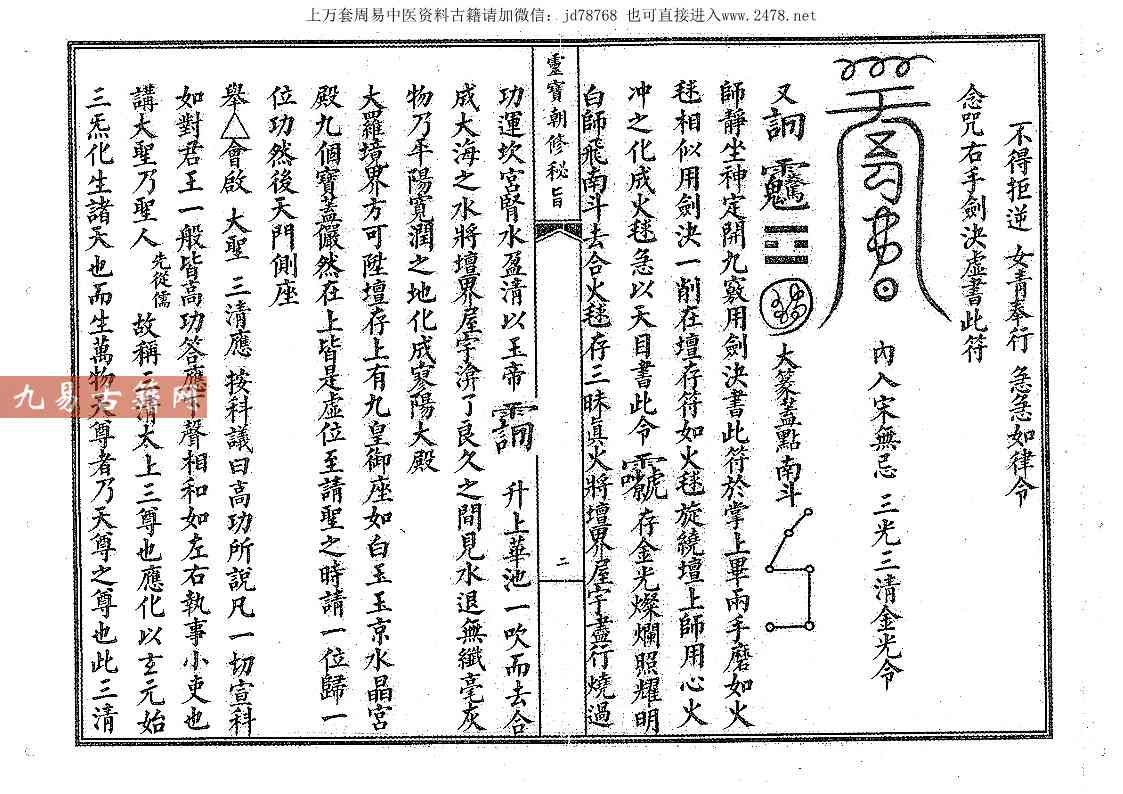 上万套周易中医资料古籍请加微信：jd78768 也可直接进入www.2478.net
不得拒逆 女青奉行 急急如律令
念咒右手劍決虛書此符
內入宋無忌 三光三清金光令
又 大篆蓋點南斗
師靜坐神定開九竅用劍決書此符於掌上畢兩手磨如火
毬相似用劍決一削在壇存符如火毬旋繞壇上師用心火
冲之化成火毬急以天目書此令 存金光燦爛照耀明
白師飛南斗去合火毬存三昧眞火將壇界屋宇盡行燒過
靈寶朝修秘旨
二
功運坎宮腎水盈清以玉帝 升上華池一吹而去合
成大海之水將壇界屋宇渰了良久之間見水退無纖毫灰
物乃平陽寬潤之地化成寥陽大殿
大羅境界方可陞壇存上有九皇御座如白玉玉京水晶宮
殿九個寶蓋儼然在上皆是虛位至請聖之時請一位歸一
位功然後天門側座
舉△會啟 大聖 三清應 按科議曰高功所說凡一切宣科
如對君王一般皆高功答應下聲相和如左右執事小吏也
講大聖乃聖人 先從儒 故稱三清太上三尊也應化以玄元始
三炁化生諸天也而生萬物天尊者乃天尊之尊也此三清
九易古籍网